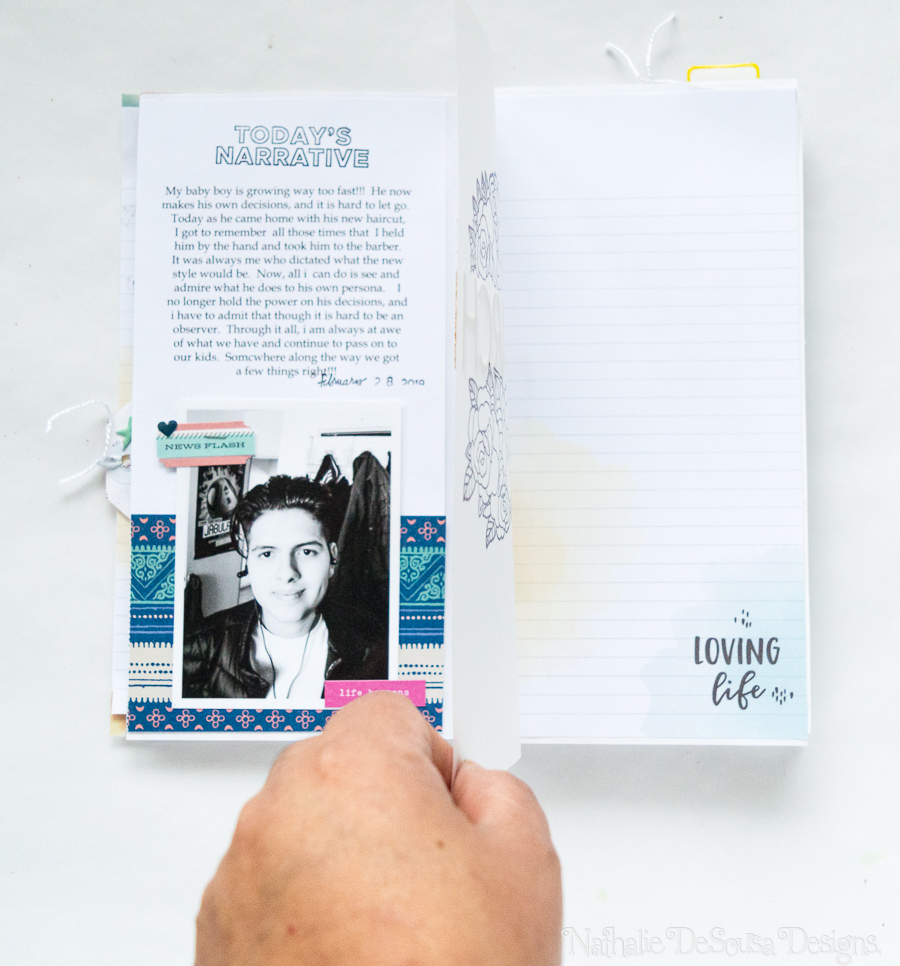 TODAY'S
NARRATIVE
My baby boy is growing way too fast!!! He now
makes his own decisions, and it is hard to let go.
Today as he came home with his new haircut,
I got to remember all those times that I held
him by the hand and took him to the barber.
It was always me who dictated what the new
style would be. Now, all i can do is see and
admire what he does to his own persona. I
no longer hold the power on his decisions, and
i have to admit that though it is hard to be an
observer. Through it all, i am always at awe
of what we have and continue to pass on to
our kids. Somewhere along the way we got
a few things right!!!
february 28 2019
NEWS FLASH
JABULA
life
LOVING
life
Nathalie DeSousa Designs.